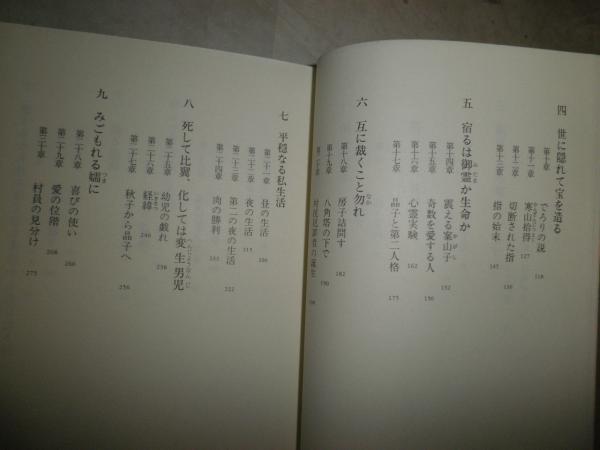 四　世に隠れて宝を造る
第十章　でろりの説　118
第十一章　寒山拾得　127
第十二章　切断された指　136
第十三章　指の始末　145
五　宿るは御霊か生命か
第十四章　震える案山子　152
第十五章　奇数を愛する人
第十六章　心霊実験　162
第十七章　晶子と第二人格　175
六　互に裁くこと勿れ
第十八章　房子詰問す　182
第十九章　八角塔の下で　190
七　平穏なる私生活
第二十一章　昼の生活
第二十二章　夜の生活　215
第二十三章　第二の夜の生活　222
第二十四章　肉の勝利
八　死して比翼、化しては変生男児
第二十五章　幼児の戯れ　238
第二十六章　経緯　246
第二十七章　秋子から晶子へ　256
九　みごもれる嬬に
第二十八章　喜びの使い　268
第二十九章　愛の位階　268
第三十章　村員の見分け　275